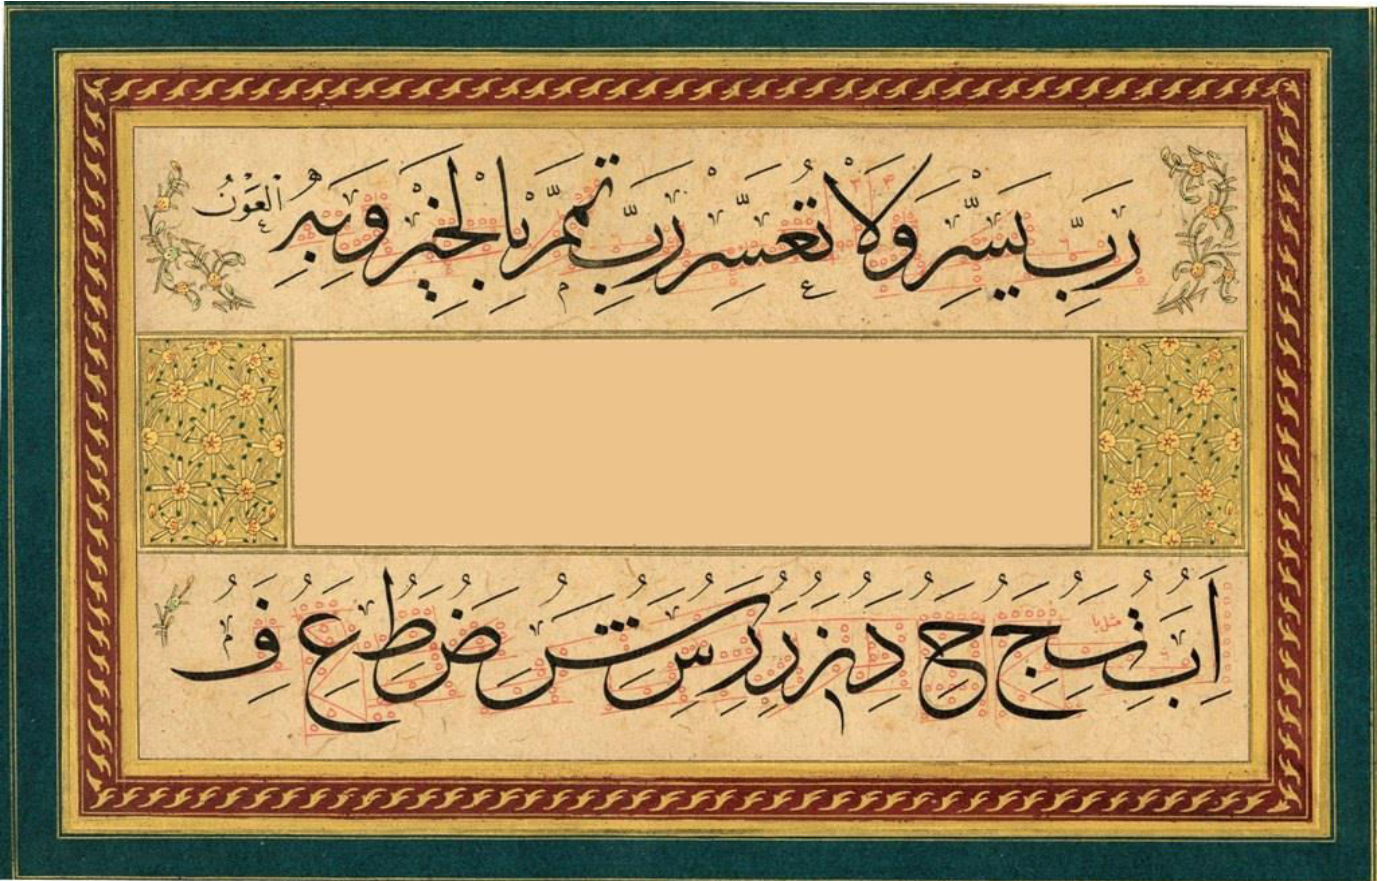 رَبِّ يَسِّرْ وَلَا تُعَسِّرْ رَبِّ تَمِّمْ بِالْخَيْرِ وَبِهِ الْعَوْنُ
ا ب ت ج ح د ز ر ر س ش ض ط ع ف